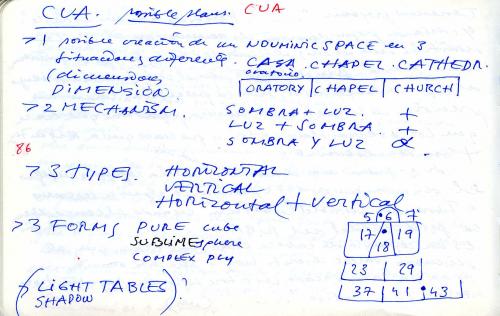 CUA. posible plans. CUA
>1 posible creación de un NOUMINIC SPACE en 3
situaciones diferente. CASA. CHAPEL. CATHEDR.
oratorio
(dimensiones
DIMENSION
ORATORY CHAPEL CHURCH
>2 MECHANISM. SOMBRA + LUZ. +
LUZ + SOMBRA. +
SOMBRA Y LUZ
86
>3 TYPES. HORIZONTAL
VERTICAL
Horizontal + vertical
>3 FORMS PURE cube
SUBLIME sphere
COMPLEX
5 6 7
17 18 19
23 29
37 41 43
(LIGHT TABLES)?
SHADOW